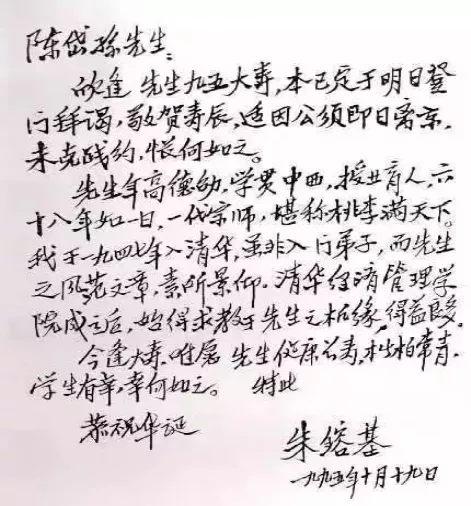 陈岱孙先生:
欣逢 先生九五大寿,本已定于明日登
门拜谒,敬贺寿辰,适因公须即日离京,
未克践约,怅何如之。
先生年高德劭,学贯中西,授业育人,六
十八年如一日,一代宗师,堪称桃李满天下。
我于一九四七年入清华,虽非入门弟子,而先生
之风范文章,素所景仰。清华经济管理学
院成立后,始得求教于先生之机缘,得益良多。
今逢大寿,唯愿 先生健康长寿,松柏常青,
学生有幸,幸何如之。 特此
恭祝华诞
朱镕基
一九九五年十月十九日